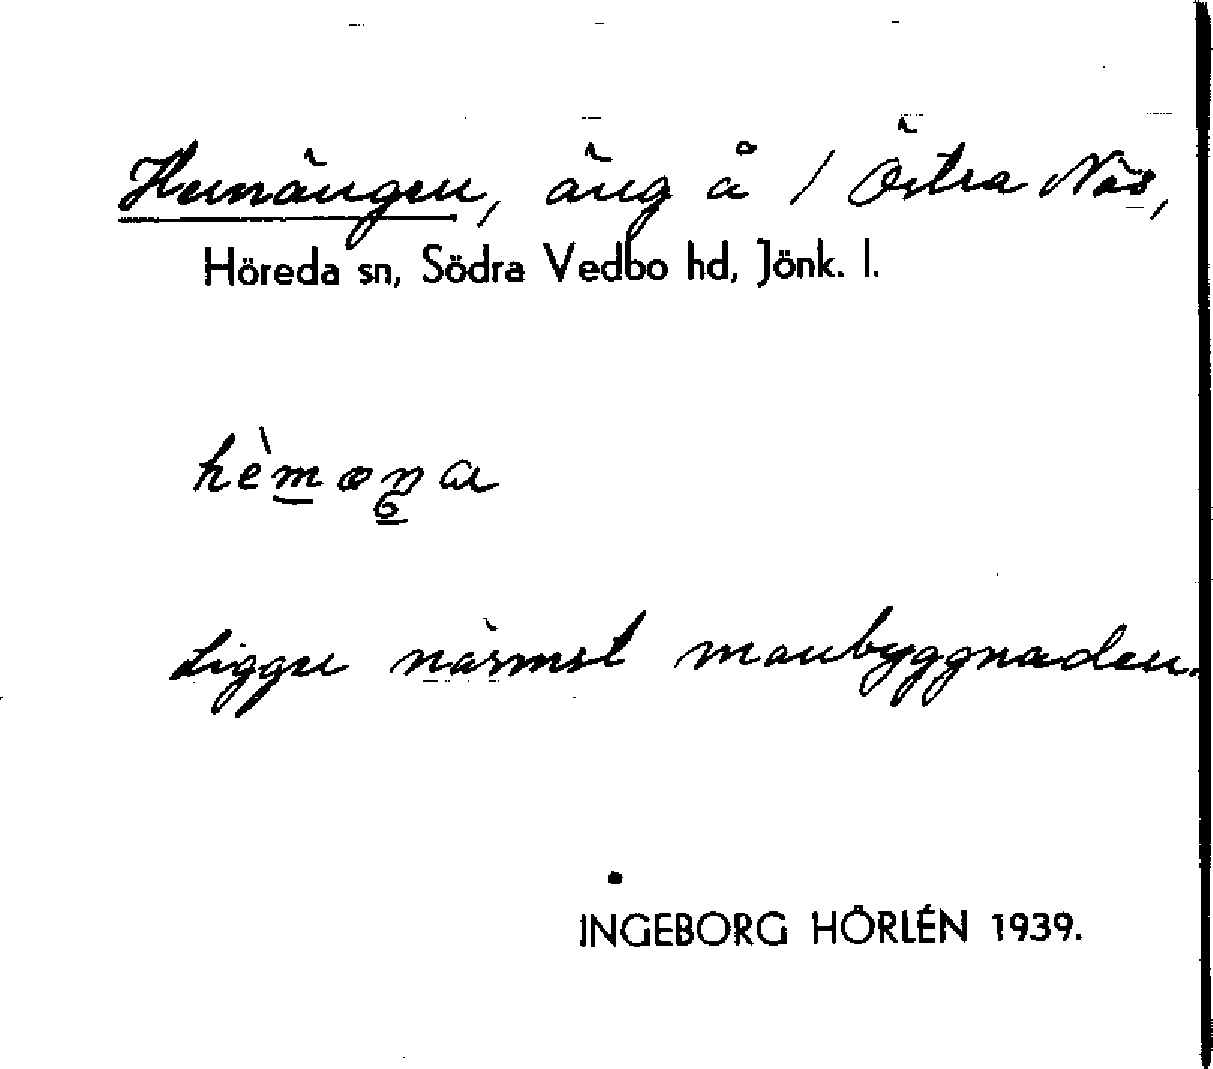 Hemängen, äng å / Östra Näs,
Höreda sn, Södra Vedbo hd, Jönk. l.
Ligger närmst manbyggnaden.
INGEBORG HÖRLÉN 1939.